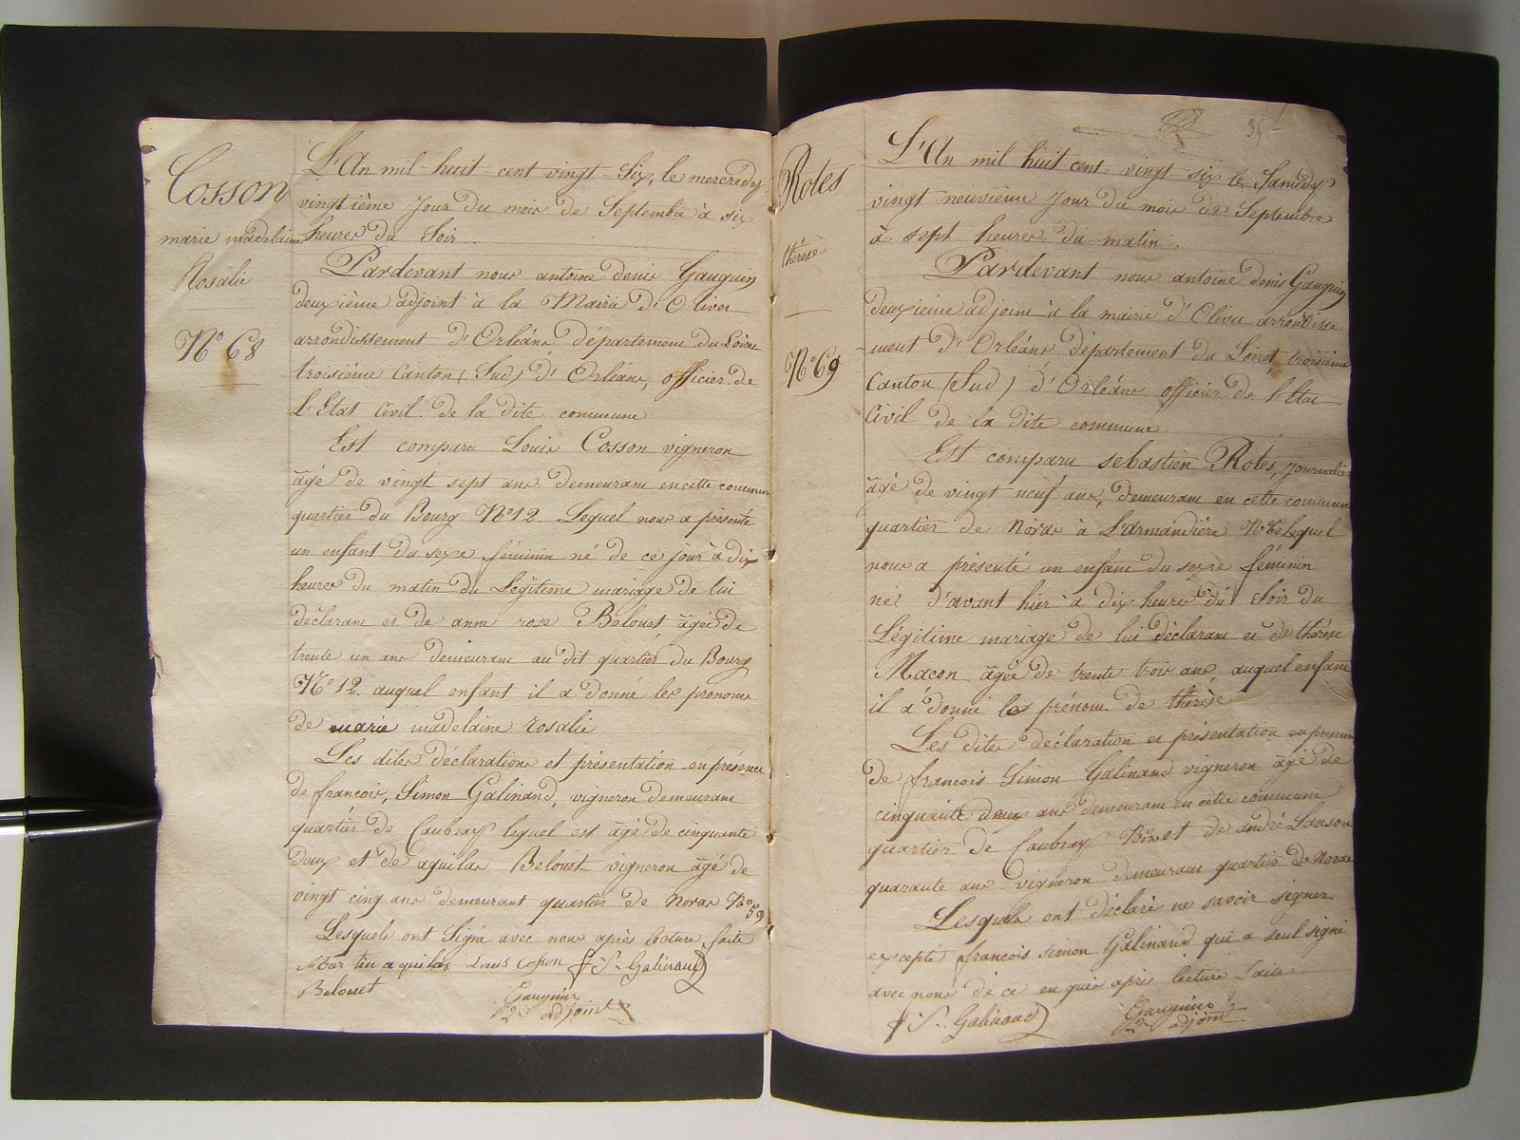 Cosson
marie madelaine
Rosalie
N° 68
L'An mil huit cent vingt Six, le mercredy
vingtième Jour du mois de Septembre à six
heures du Soir.
Pardevant nous antoine denis Gauguin
deuxième adjoint à la Mairie d'Olivet
arrondissement d'Orléans département du Loiret
troisième Canton (Sud) d'Orléans, officier de
L'Etat Civil de la dite commune
Est comparu Louis Cosson vigneron
âgé de vingt sept ans demeurant en cette commune
quartier du Bourg N° 12 Lequel nous a présenté
un enfant du sexe féminin né de ce jour à dix
heures du matin du Légitime mariage de lui
déclarant et de anne rose Belouet âgée de
trente un ans demeurant au dit quartier du Bourg
N° 12. auquel enfant il a donné les prenoms
de marie madelaine rosalie
Les dites déclarations et présentation en présence
de francois, Simon Galinand, vigneron demeurant
quartier de Caubray lequel est âgé de cinquante
deux et de aquilas Belouet vigneron âgé de
vingt cinq ans demeurant quartier de Noras N°
59
Lesquels ont Signé avec nous après lecture faite
aquilas Louis Cosson f. S. Galinand
Belouet
Gauguin
2e adjoint
35
Rotes
thérèse
N° 69
L'An mil huit cent vingt six le Samedy
vingt neuvième Jour du mois de Septembre
à sept heures du matin.
Pardevant nous antoine denis Gauguin
deuxieme adjoint à la mairie d'Olivet arrondisse
ment d'Orléans département du Loiret, troisième
Canton (Sud) d'Orléans officier de l'Etat
Civil de la dite commune
Est comparu sebastien Rotes, journalier
âgé de vingt neuf ans, demeurant en cette commune
quartier de Noras à L'armandière lequel
nous a présenté un enfant du sexe féminin
né d'avant hier à dix heures du Soir du
Légitime mariage de lui déclarant et de thérèse
Macon âgée de trente trois ans auquel enfant
il a donné les prénom de thérèse
Les dites déclaration et présentation en présence
de francois Simon Galinand vigneron âgé de
cinquante deux ans demeurant en cette commune
quartier de Caubray et de andré
quarante ans vigneron demeurant quartier de Noras
Lesquels ont déclaré ne savoir signer
excepté francois simon Galinand qui a seul signé
avec nous de ce enquis après lecture faite
f. S. Galinand
Gauguin
2e adjoint